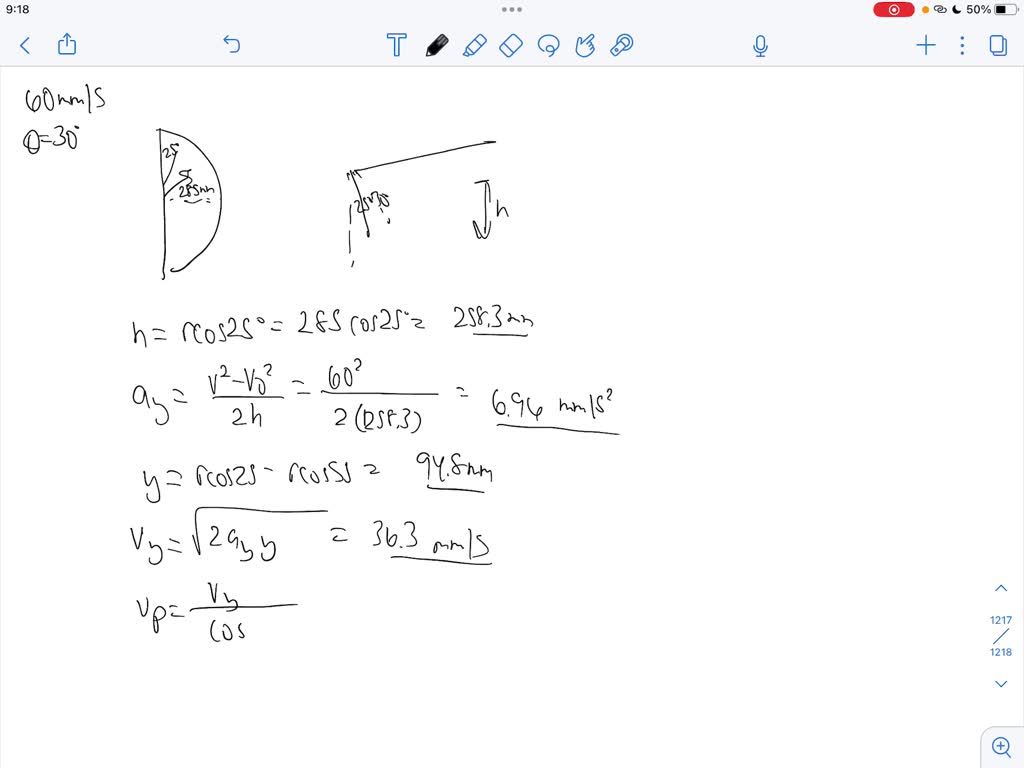 9:18
50%
60mm/s
θ=30°
25
285mm
h
h = rcos25° = 285 cos25° = 258.3 mm
ay = V²-V0² / 2h = 60² / 2(258.3) = 6.96 mm/s²
y = rcos25 - rcos55 = 94.8mm
Vy = √2ayy = 36.3 mm/s
Vp = Vy / cos
1217
1218